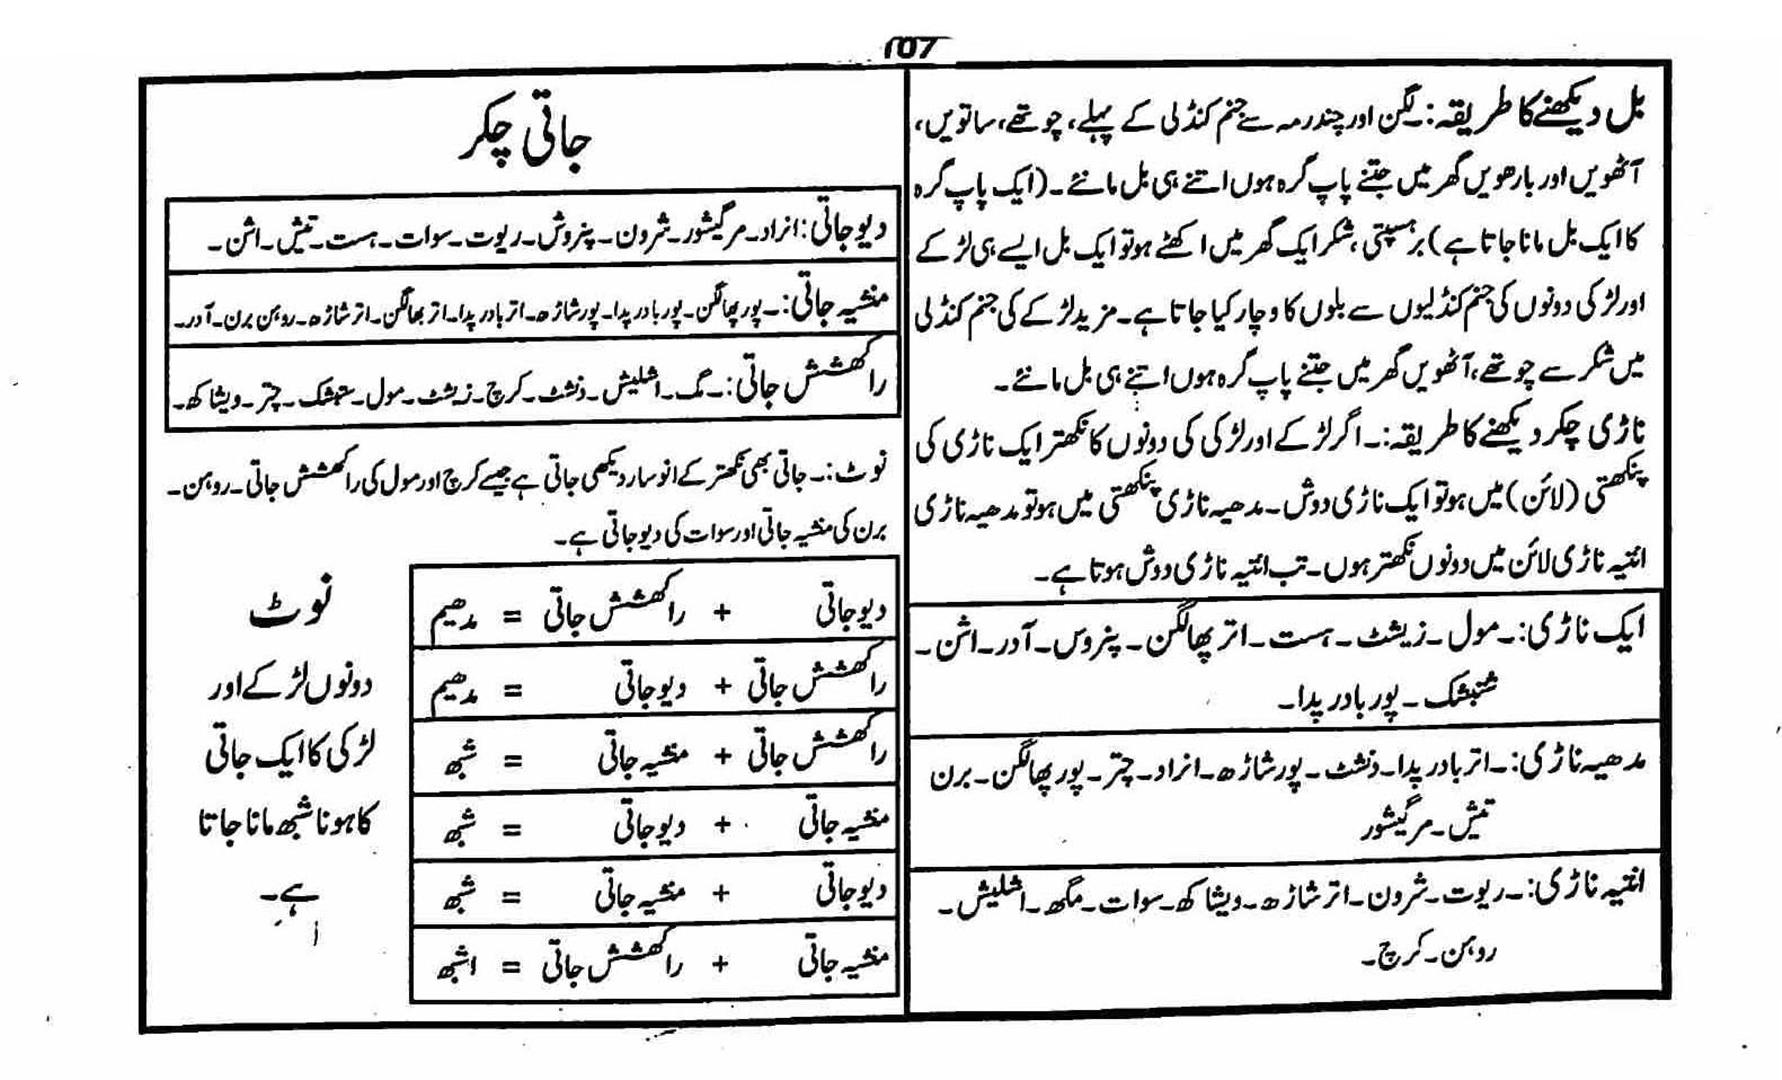 107
بل دیکھنے کا طریقہ:۔ لگن اور چندرمہ سے جنم کنڈلی کے پہلے، چوتھے، ساتویں،
آٹھویں اور بارھویں گھر میں جتنے پاپ گرہ ہوں اتنے ہی بل مانئے۔ (ایک پاپ گرہ
کا ایک بل مانا جاتا ہے) برہسپتی، شکر ایک گھر میں اکھٹے ہو تو ایک بل ایسے ہی لڑکے
اور لڑکی دونوں کی جنم کنڈلیوں سے بلوں کا وچار کیا جاتا ہے۔ مزید لڑکے کی جنم کنڈلی
میں شکر سے چوتھے، آٹھویں گھر میں جتنے پاپ گرہ ہوں اتنے ہی بل مانئے۔
ناڑی چکر دیکھنے کا طریقہ:۔ اگر لڑکے اور لڑکی کی دونوں کا نکھتر ایک ناڑی کی
پنکھتی (لائن) میں ہو تو ایک ناڑی دوش۔ مدھیہ ناڑی پنکھتی میں ہو تو مدھیہ ناڑی
انتیہ ناڑی لائن میں دونوں نکھتر ہوں۔ تب انتیہ ناڑی دوش ہوتا ہے۔
ایک ناڑی:۔ مول۔ زیشٹ۔ ہست۔ اتر پھالگن۔ پنروس۔ آدر۔ اشن۔
شتبشک۔ پور بادر پدا۔
مدھیہ ناڑی:۔ اتر بادر پدا۔ دنشٹ۔ پور شاڑھ۔ انراد۔ چتر۔ پور پھالگن۔ برن
تیش۔ مرگیشور
انتیہ ناڑی:۔ ریوت۔ شرون۔ اتر شاڑھ۔ ویشاکھ۔ سوات۔ مگھ۔ اشلیش۔
روہن۔ کرچ۔
جاتی چکر
دیو جاتی: انراد۔ مرگیشور۔ شرون۔ پنروش۔ ریوت۔ سوات۔ ہست۔ تیش۔ اشن۔
منشیہ جاتی:۔ پور پھالگن۔ پور بادر پدا۔ پور شاڑھ۔ اتر بادر پدا۔ اتر بھالگن۔ اتر شاڑھ۔ روہن برن۔ آدر۔
راکھشش جاتی:۔ مگ۔ اشلیش۔ دنشٹ۔ کرچ۔ زیشٹ۔ مول۔ ستبشک۔ چتر۔ ویشاکھ۔
نوٹ:۔ جاتی بھی نکھتر کے انوسار دیکھی جاتی ہے جیسے کرچ اور مول کی راکھشش جاتی۔ روہن۔
برن کی منشیہ جاتی اور سوات کی دیو جاتی ہے۔
دیو جاتی + راکھشش جاتی = مدھیم
راکھشش جاتی + دیو جاتی = مدھیم
راکھشش جاتی + منشیہ جاتی = شبھ
منشیہ جاتی + دیو جاتی = شبھ
دیو جاتی + منشیہ جاتی = شبھ
منشیہ جاتی + راکھشش جاتی = اشبھ
نوٹ
دونوں لڑکے اور
لڑکی کا ایک جاتی
کا ہونا شبھ مانا جاتا
ہے۔